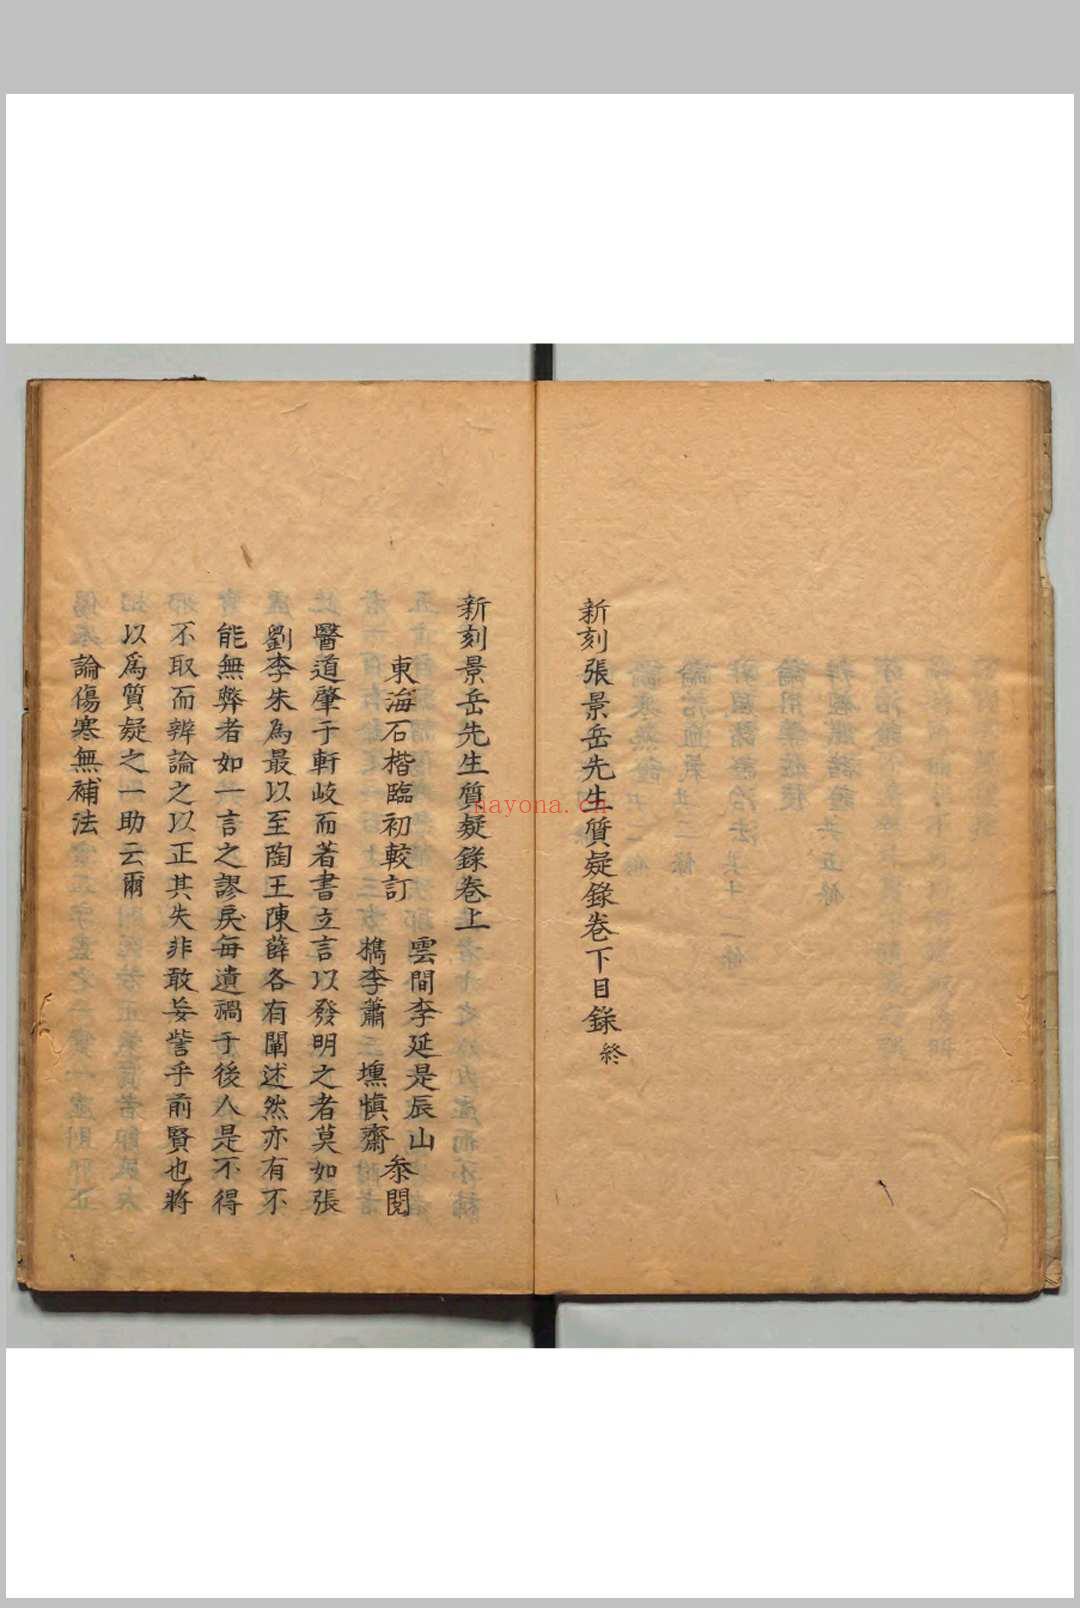 新刻張景岳先生質疑錄卷下目錄終
新刻景岳先生質疑錄卷上
東海石楷臨初較訂
雲間李延是辰山
檇李蕭壎慎齋
叅閱
醫道肇于軒岐而著書立言以發明之者莫如張
劉李朱為最以至陶王陳薛各有闡述然亦有不
能無弊者如一言之謬戾每遺禍于後人是不得
不取而辨論之以正其失非敢妄訾乎前賢也將
以為質疑之一助云爾
論傷寒無補法
nayona.cn